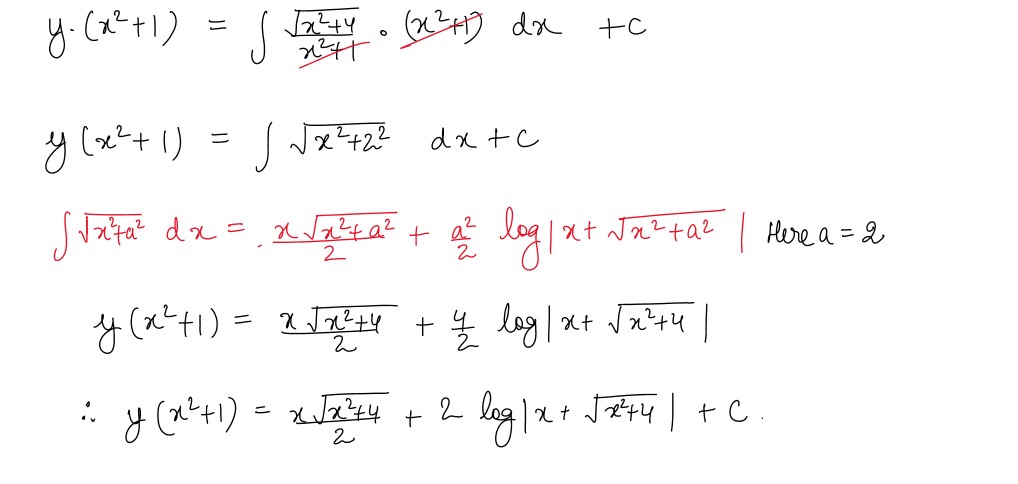 y·(x²+1) = ∫ √(x²+4)/(x²+1) · (x²+1) dx + c
y (x²+1) = ∫ √(x²+2²) dx + c
∫√(x²+a²) dx = x√(x²+a²)/2 + a²/2 log|x+√(x²+a²)| Here a = 2
y (x²+1) = x√(x²+4)/2 + 4/2 log|x+√(x²+4)|
∴ y (x²+1) = x√(x²+4)/2 + 2 log|x+√(x²+4)| + C.